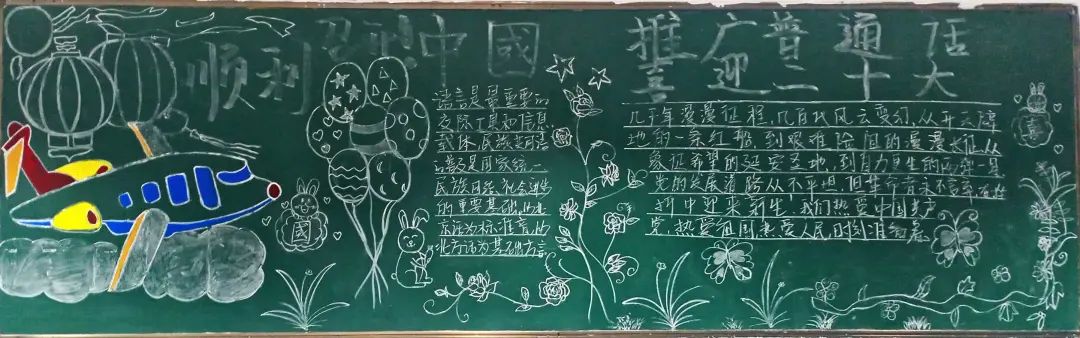 顺利召开中國
推广普通话
喜迎二十大
语言是最重要的
交际工具和信息
载体,民族共同语
言是国家统一
民族团结,社会进步
的重要基础,以北
京语音为标准音,以
北方话为基础方言
國
几千年漫漫征程,几百代风云变幻,从开天辟
地的一条红船,到艰难险阻的漫漫长征,从
象征希望的延安圣地,到自力更生的
党的发展道路从不平坦,但革命者永不言弃,在
中迎来新生,我们热爱中国共产
党,热爱祖国热爱人民,时刻准备着